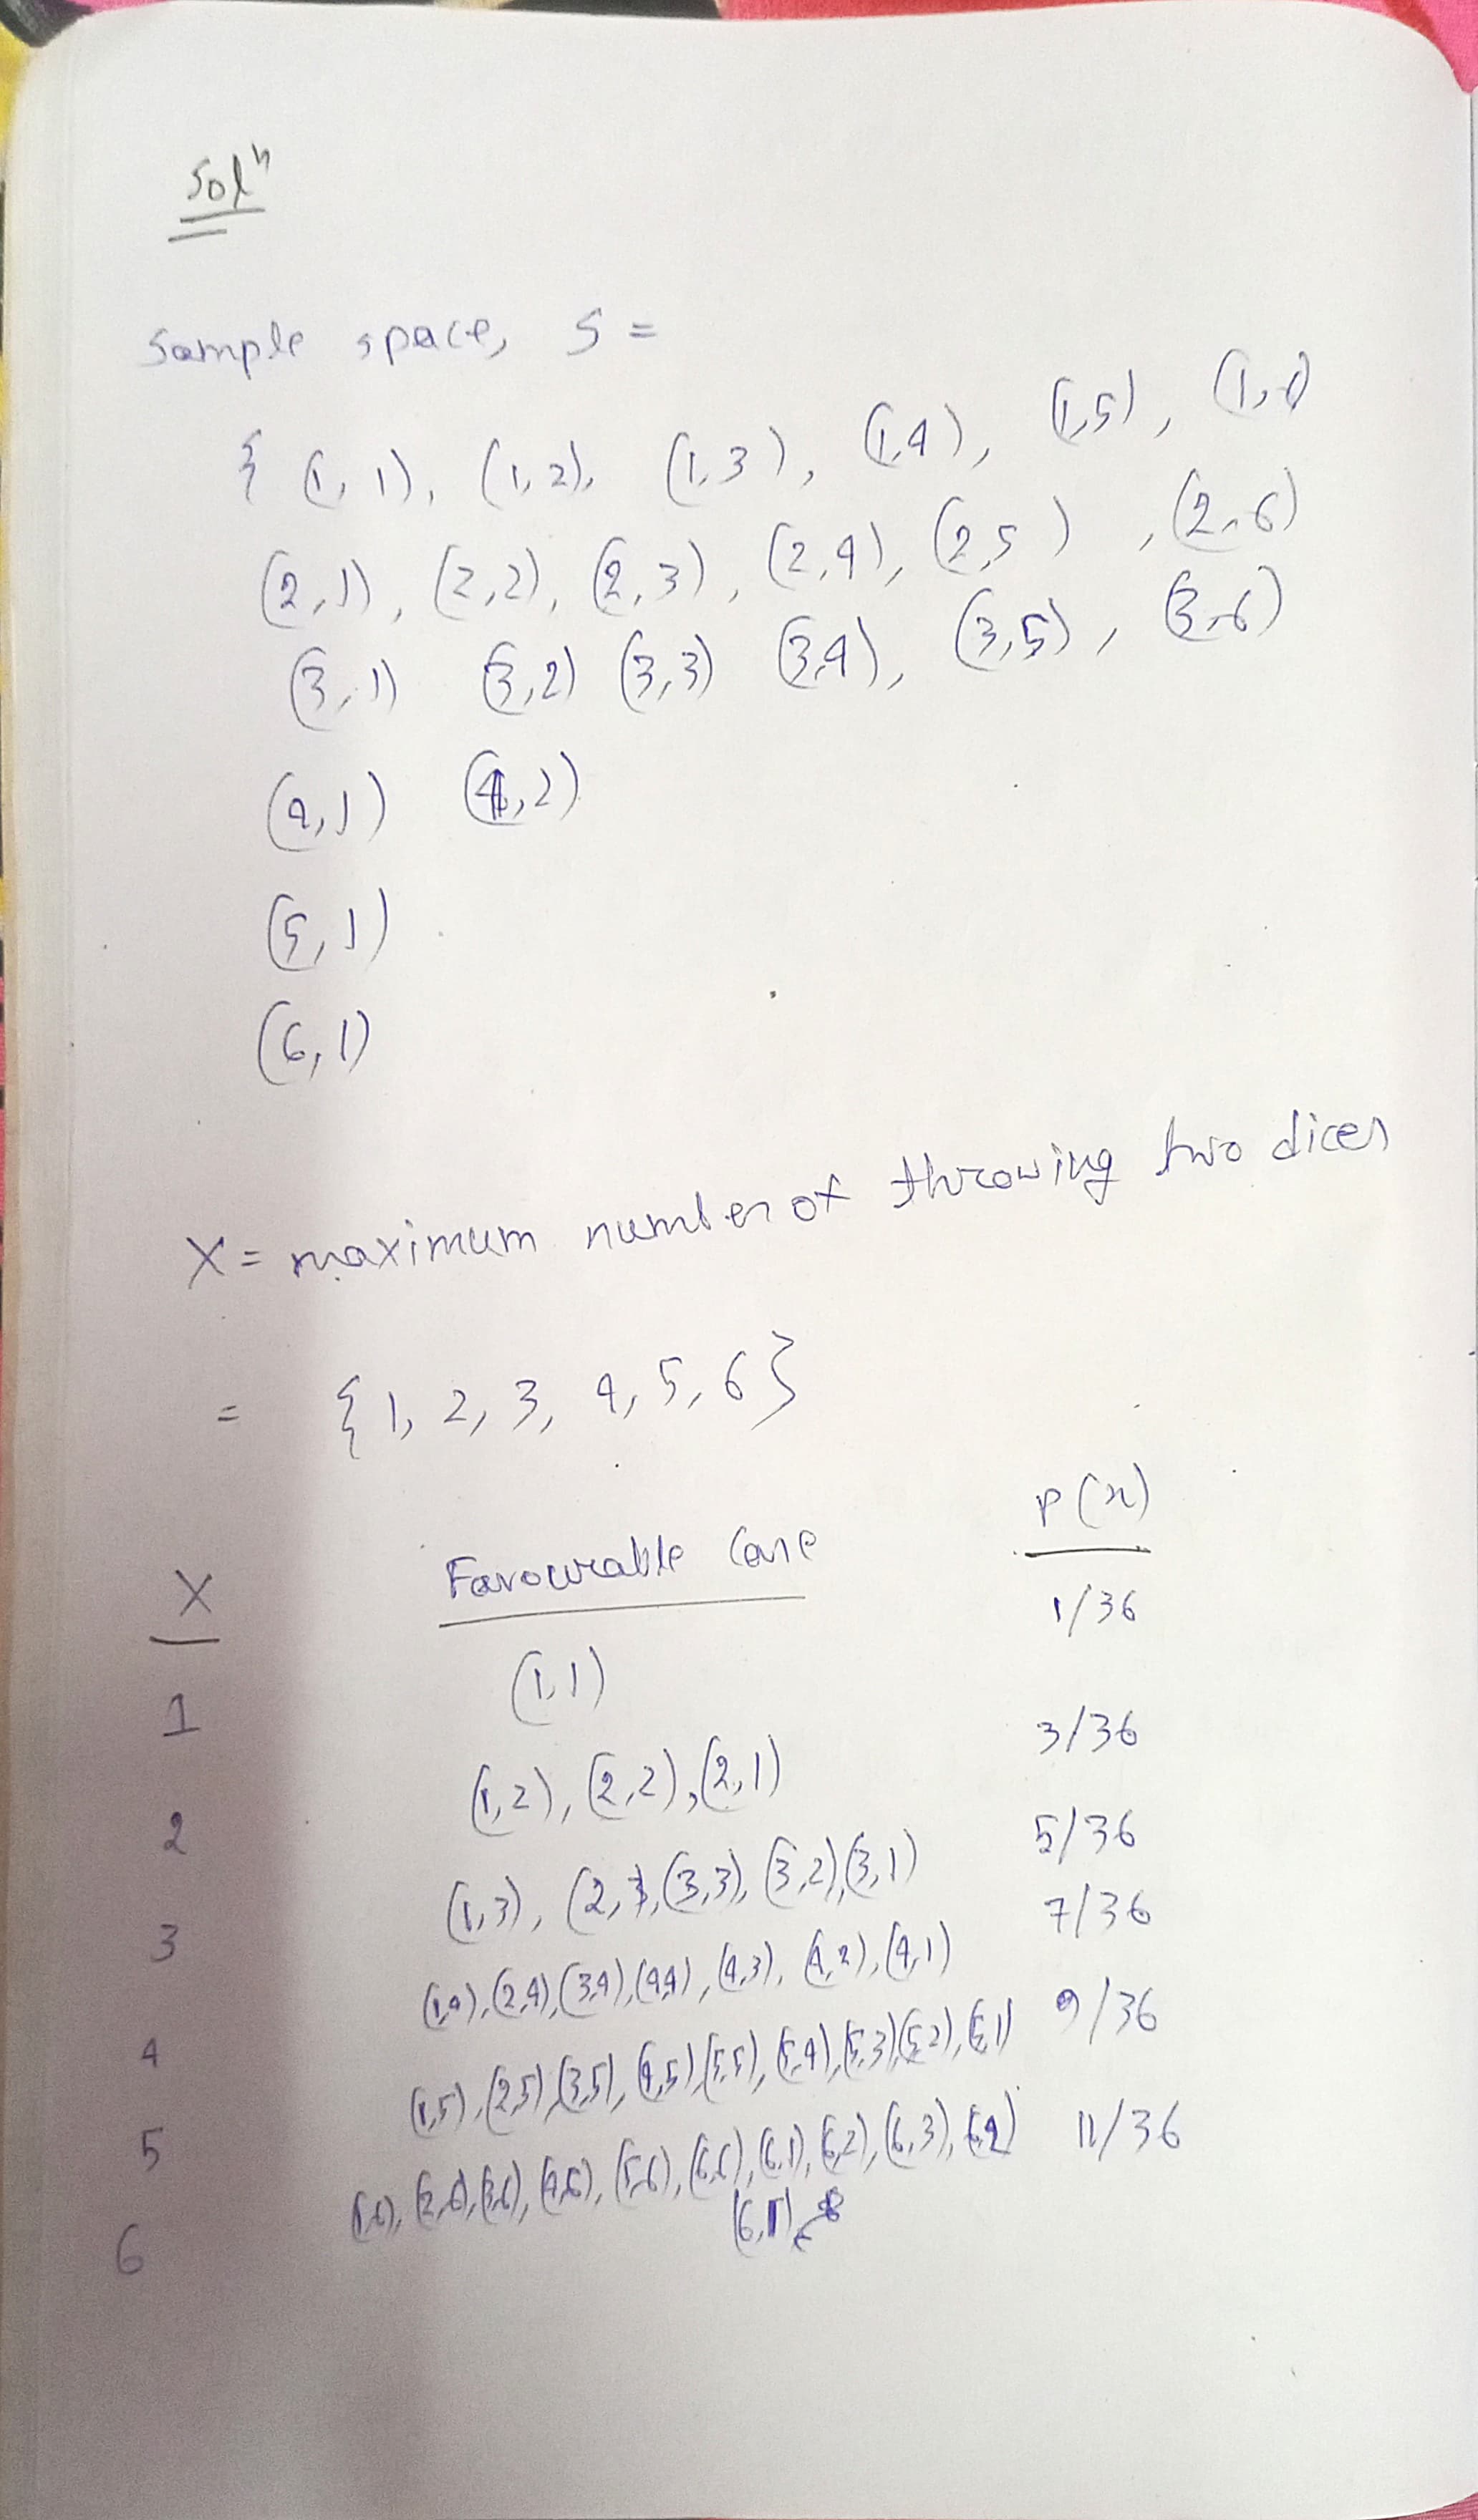 Solⁿ
Sample space, S =
{ (1, 1), (1, 2), (1, 3), (1,4), (1,5), (1,6)
(2,1), (2,2), (2,3), (2,4), (2,5), (2,6)
(3,1) (3,2) (3,3) (3,4), (3,5), (3,6)
(4,1) (4,2)
(5,1)
(6,1)
X = maximum number of throwing two dices
= { 1, 2, 3, 4, 5, 6 }
X Favourable Case P(x)
1 (1,1) 1/36
2 (1,2), (2,2), (2,1) 3/36
3 (1,3), (2,3), (3,3), (3,2), (3,1) 5/36
4 (1,4), (2,4), (3,4), (4,4), (4,3), (4,2), (4,1) 7/36
5 (1,5), (2,5), (3,5), (4,5), (5,5), (5,4), (5,3), (5,2), (5,1) 9/36
6 (1,6), (2,6), (3,6), (4,6), (5,6), (6,6), (6,1), (6,2), (6,3), (6,4) 11/36